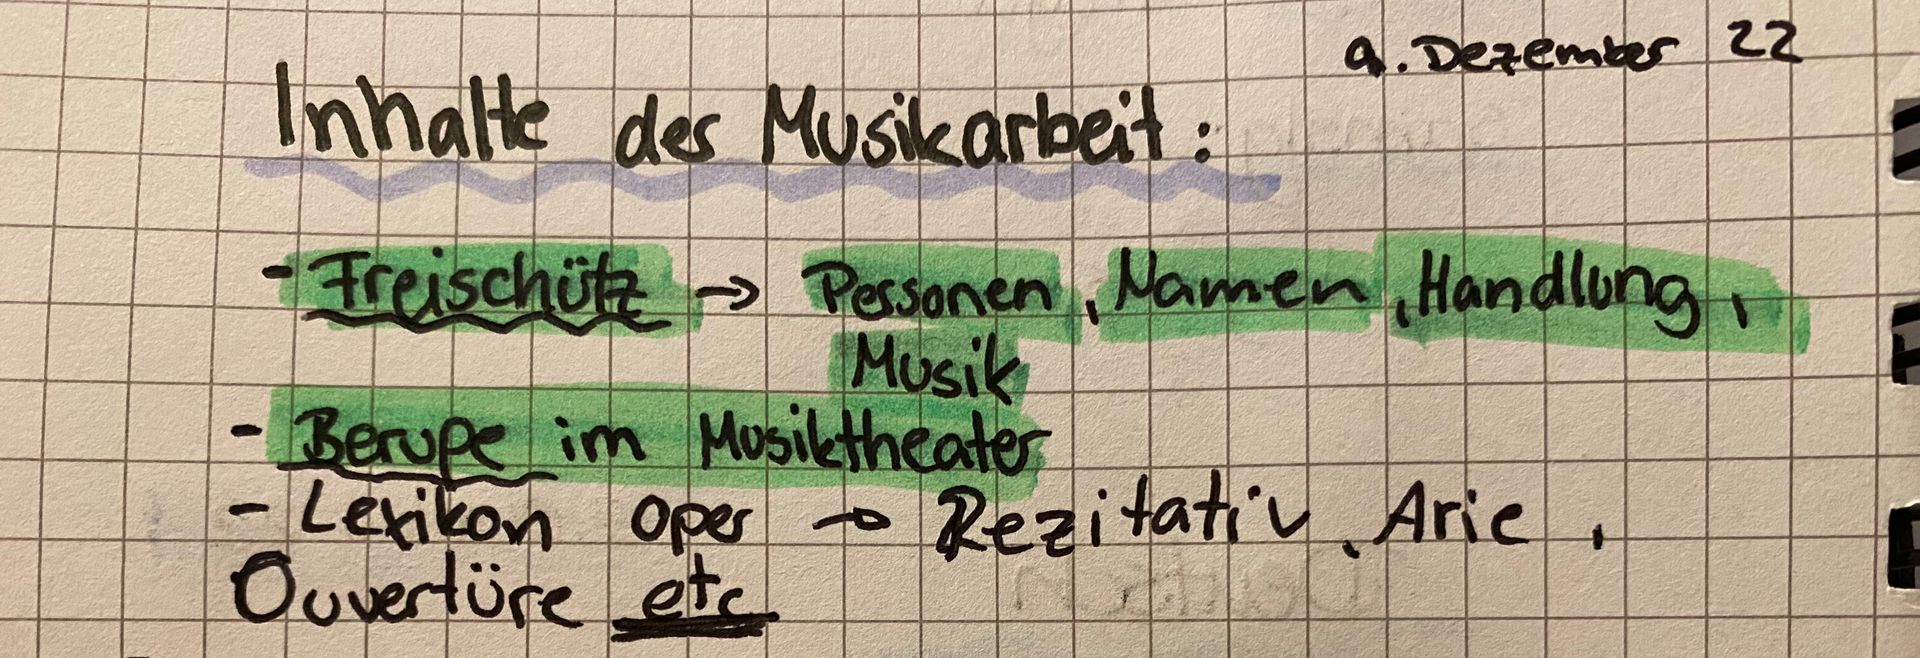 9. Dezember 22
Inhalte der Musikarbeit:
- Freischütz → Personen, Namen, Handlung,
Musik
- Berupe im Musiktheater
- Lexikon Oper → Rezitativ, Arie,
Ouvertüre etc